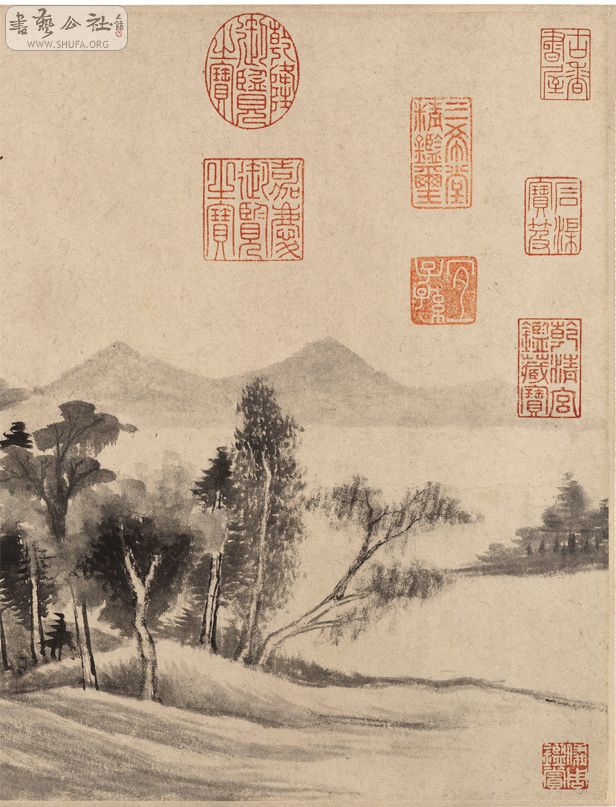 書藝公社
WWW.SHUFA.ORG
古香書屋
石渠寶笈
乾清宮鑑藏寶
三希堂精鑑璽
宜子孫
乾隆御覽之寶
嘉慶御覽之寶
鑑賞